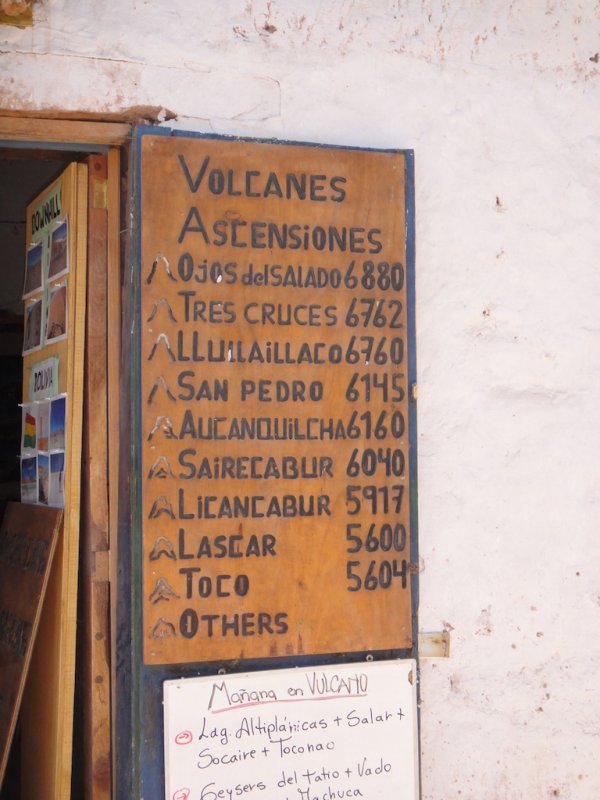 DOWNHILL!
BOLIVIA
VOLCANES
ASCENSIONES
OJOS del SALADO 6880
TRES CRUCES 6762
LLULLAILLACO 6760
SAN PEDRO 6145
AUCANQUILCHA 6160
SAIRECABUR 6040
LICANCABUR 5917
LASCAR 5600
TOCO 5604
OTHERS
Mañana en VULCANO
Lag. Altiplánicas + Salar +
Socaire + Toconao
Geysers del Tatio + Vado
Machuca